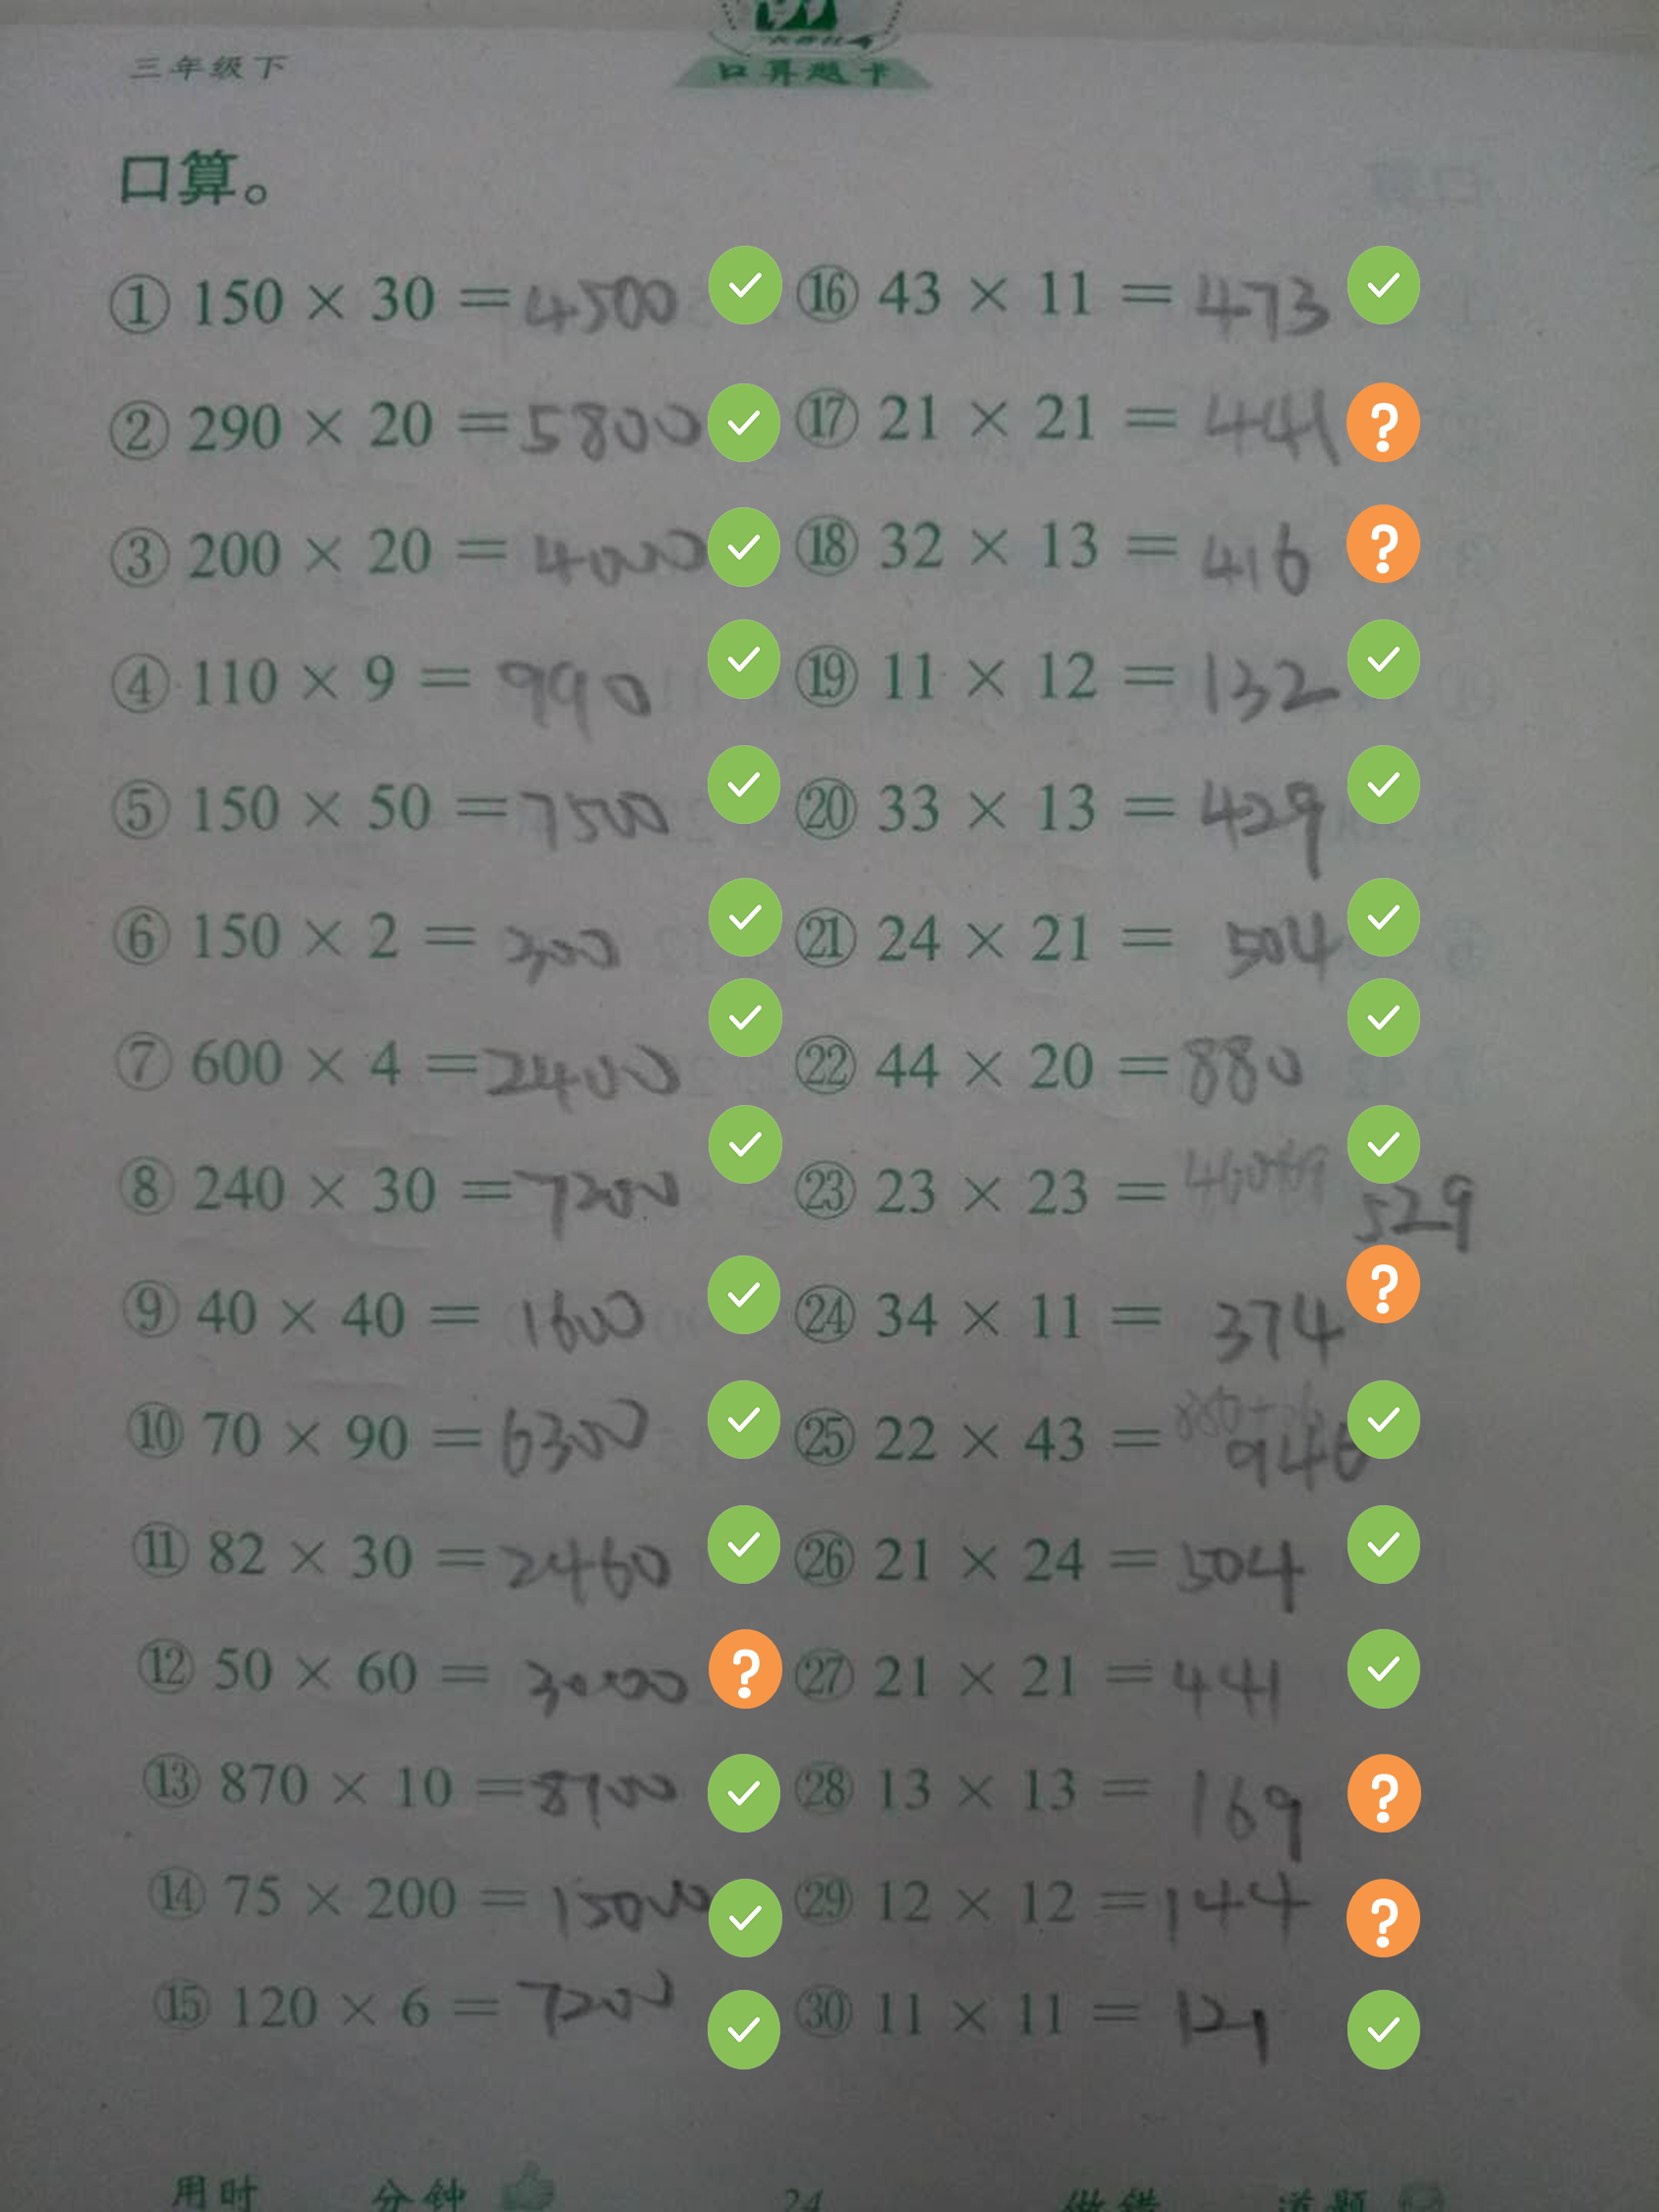 三年级下
口算题卡
口算。
① 150 × 30 = 4500
② 290 × 20 = 5800
③ 200 × 20 = 4000
④ 110 × 9 = 990
⑤ 150 × 50 = 7500
⑥ 150 × 2 = 300
⑦ 600 × 4 = 2400
⑧ 240 × 30 = 7200
⑨ 40 × 40 = 1600
⑩ 70 × 90 = 6300
⑪ 82 × 30 = 2460
⑫ 50 × 60 = 3000
⑬ 870 × 10 = 8700
⑭ 75 × 200 = 15000
⑮ 120 × 6 = 7200
⑯ 43 × 11 = 473
⑰ 21 × 21 = 441
⑱ 32 × 13 = 416
⑲ 11 × 12 = 132
⑳ 33 × 13 = 429
㉑ 24 × 21 = 504
㉒ 44 × 20 = 880
㉓ 23 × 23 = 460+69 529
㉔ 34 × 11 = 374
㉕ 22 × 43 = 946
㉖ 21 × 24 = 504
㉗ 21 × 21 = 441
㉘ 13 × 13 = 169
㉙ 12 × 12 = 144
㉚ 11 × 11 = 121
用时 分钟 24 做错 道题